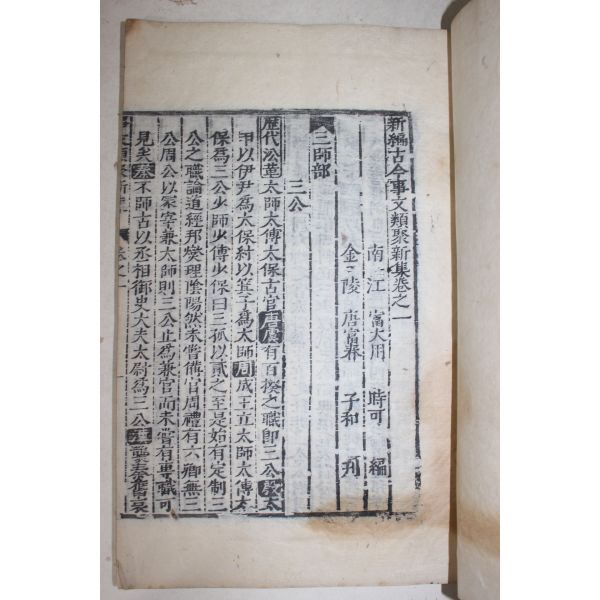 新編古今事文類聚新集卷之一
南江 富大用 時可 編
金陵 唐富春 子和 刋
三師部
三公
歷代沿革 太師太傅太保古官唐虞有百揆之職即三公殷太
甲以伊尹爲太保紂以箕子爲太師周成王立太師太傅太
保爲三公少師少傅少保曰三孤以貳之至是始有定制三
公之職論道經邦燮理陰陽然未嘗備官周禮有六卿無三
公周公以冢宰兼太師則三公止爲兼官而未嘗有專職可
見矣秦不師古以丞相御史大夫太尉爲三公漢襲秦舊哀
卷之一